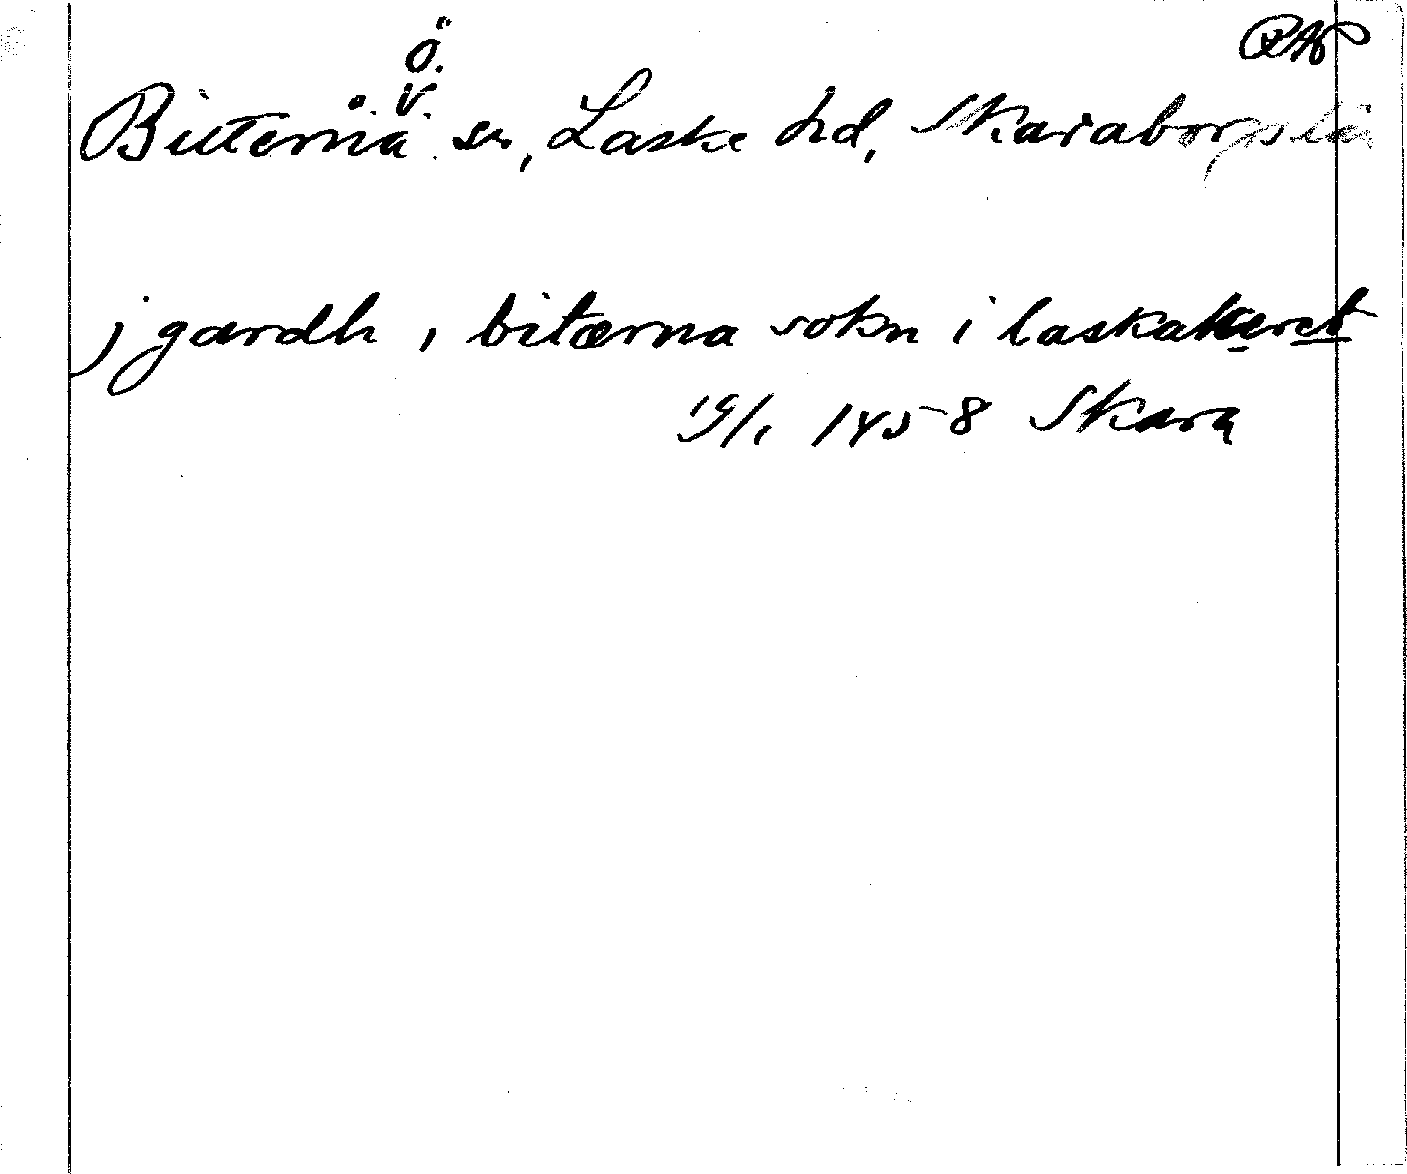 RAP
Ö.
V.
Bitternä sn, Laske hd, Skaraborgs län
j gardh, i bitærna sokn i laskahæret
19/1 1458 Skara